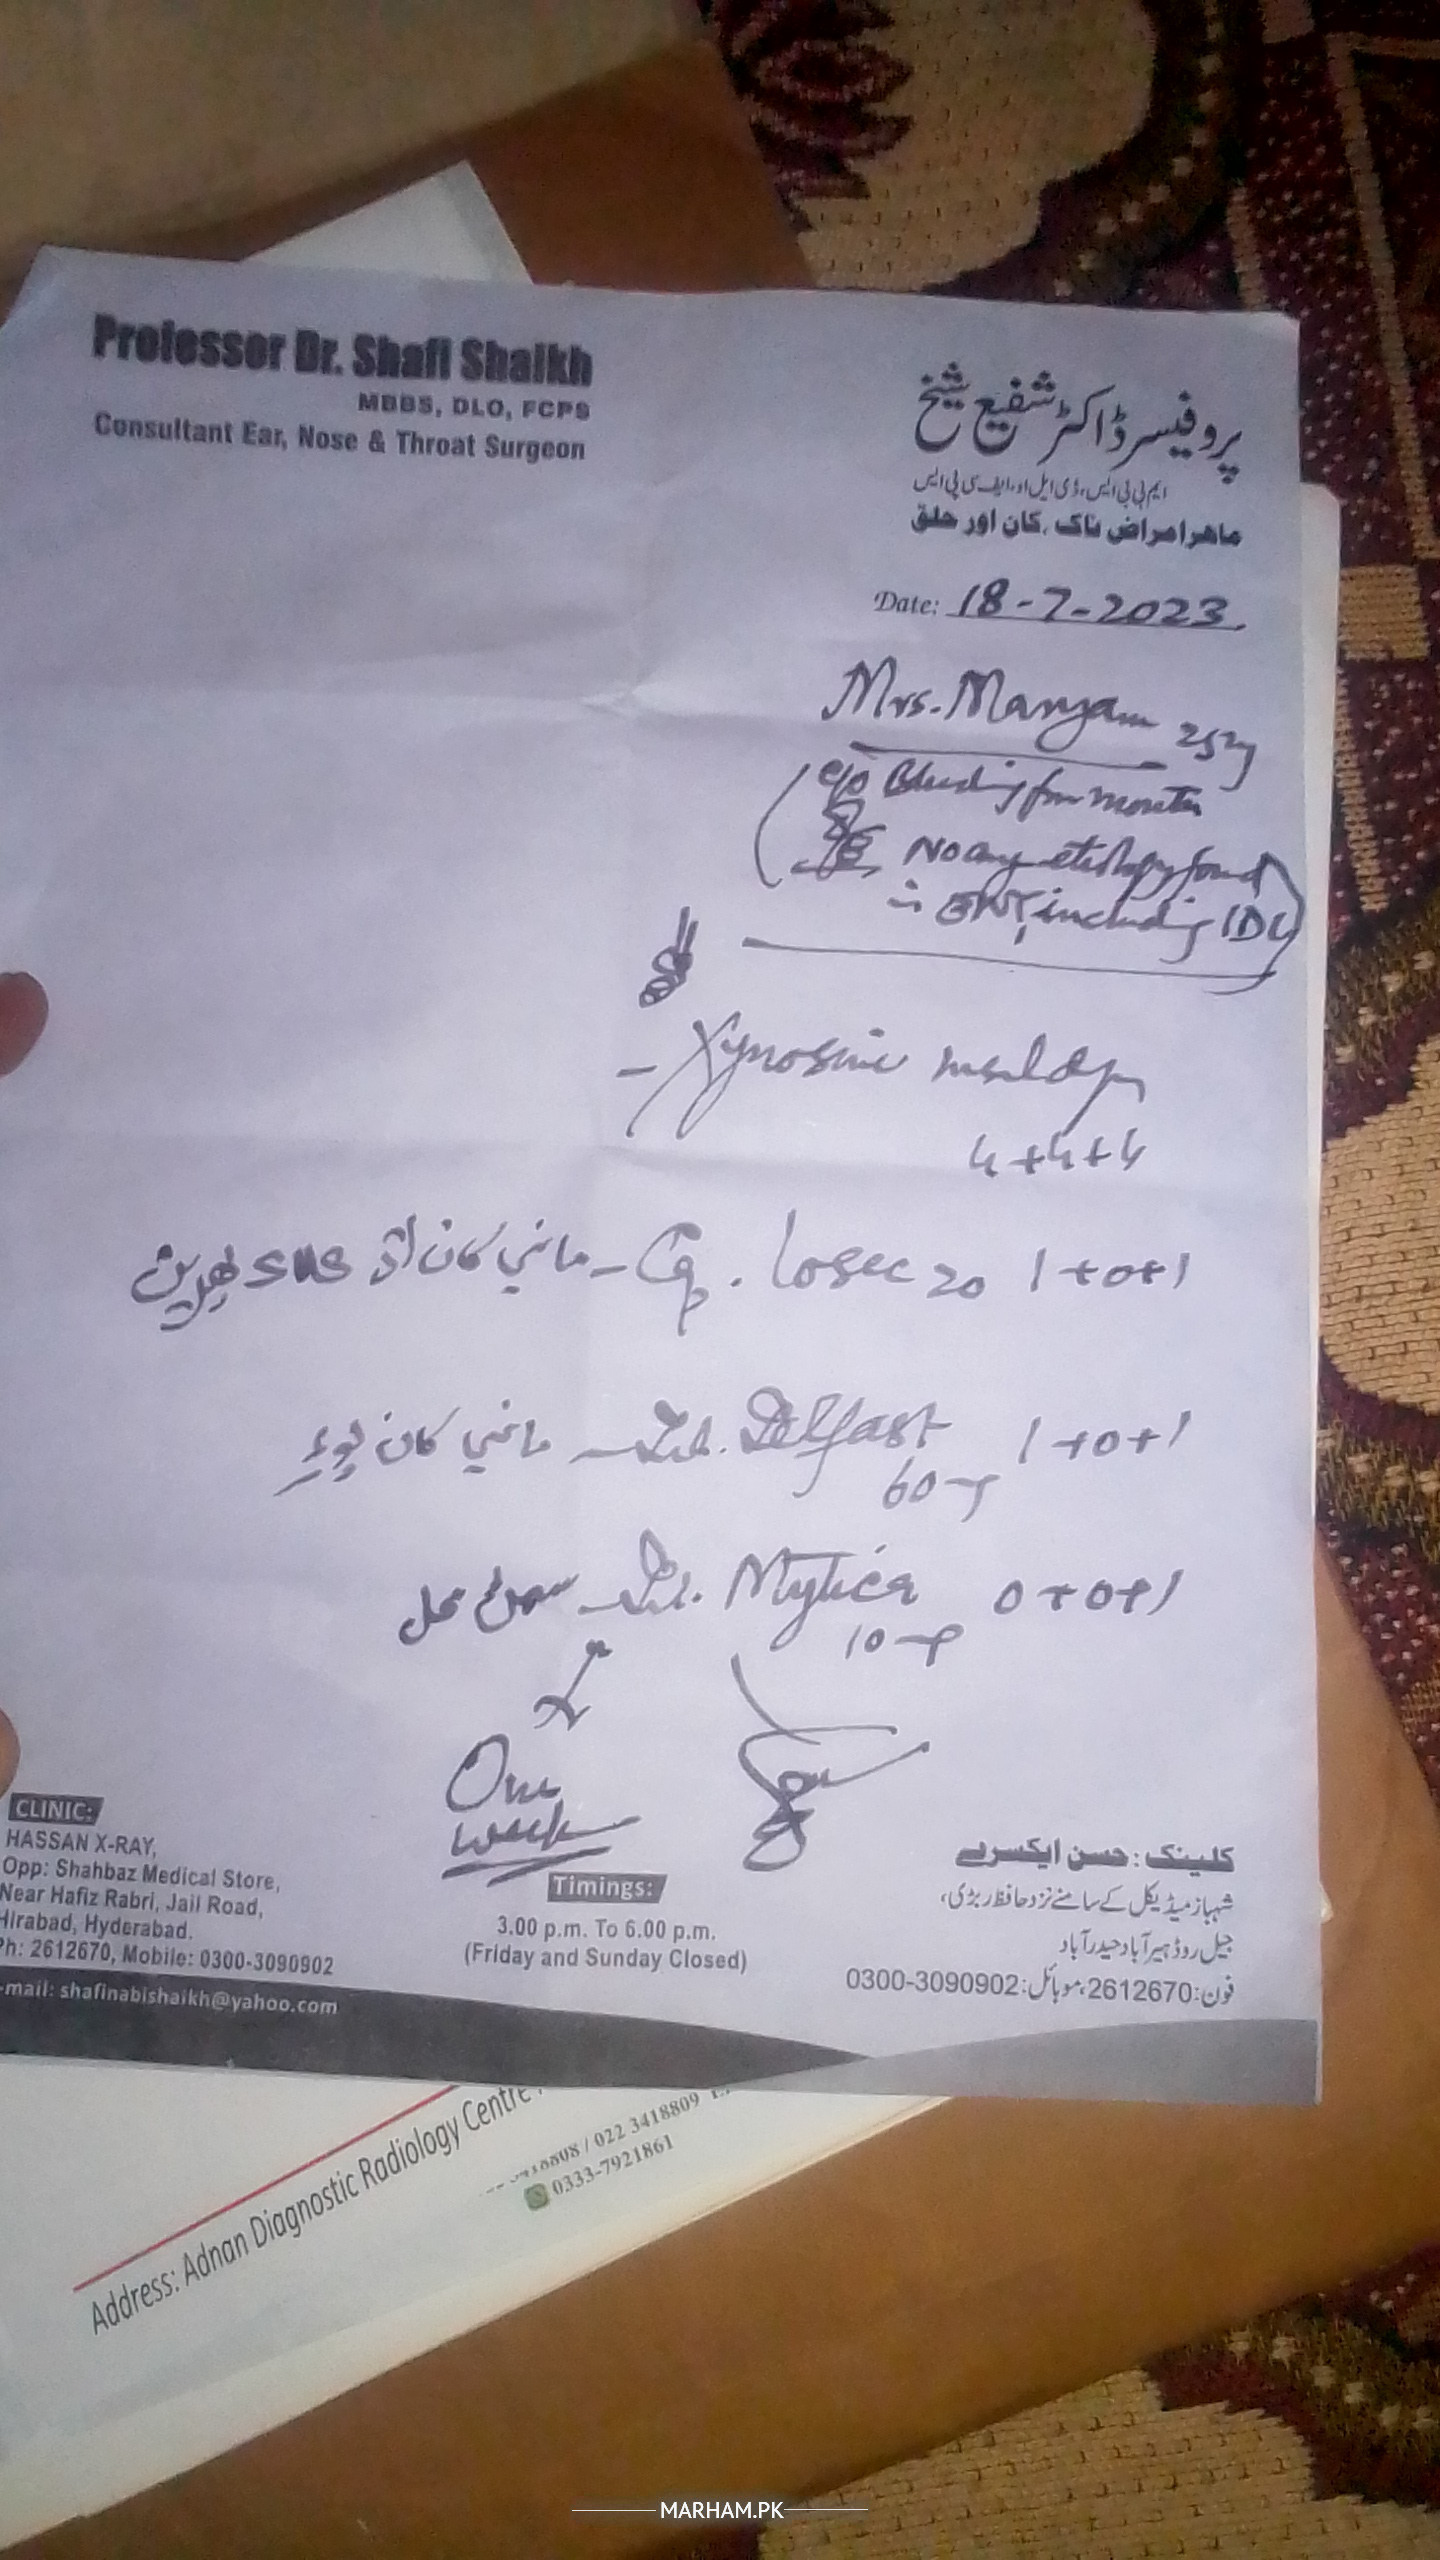 Professor Dr. Shafi Shaikh
MBBS, DLO, FCPS
Consultant Ear, Nose & Throat Surgeon
پروفیسر ڈاکٹر شفیع شیخ
ایم بی بی ایس، ڈی ایل او، ایف سی پی ایس
ماهر امراض ناک، کان اور حلق
Date: 18-7-2023.
Mrs. Maryam 25y
c/o Bleeding from mouth
No any etiology found
in ENT, including IDL
- Xynosine nasal drops
4+4+4
- Cap. Losec 20 1+0+1
ماني کان
- Tab. Delfast 1+0+1
60 mg
ماني کان پوءِ
- Tab. Mytica 0+0+1
10 mg
One
week
CLINIC:
HASSAN X-RAY,
Opp: Shahbaz Medical Store,
Near Hafiz Rabri, Jail Road,
Hirabad, Hyderabad.
Ph: 2612670, Mobile: 0300-3090902
-mail: shafinabishaikh@yahoo.com
Timings:
3.00 p.m. To 6.00 p.m.
(Friday and Sunday Closed)
کلینک: حسن ایکسرے
شہباز میڈیکل کے سامنے نزد حافظ ربڑی،
جیل روڈ ہیرآباد حیدرآباد
فون: 2612670، موبائل: 0300-3090902
Address: Adnan Diagnostic Radiology Centre
/ 022 3418809
0333-7921861
MARHAM.PK